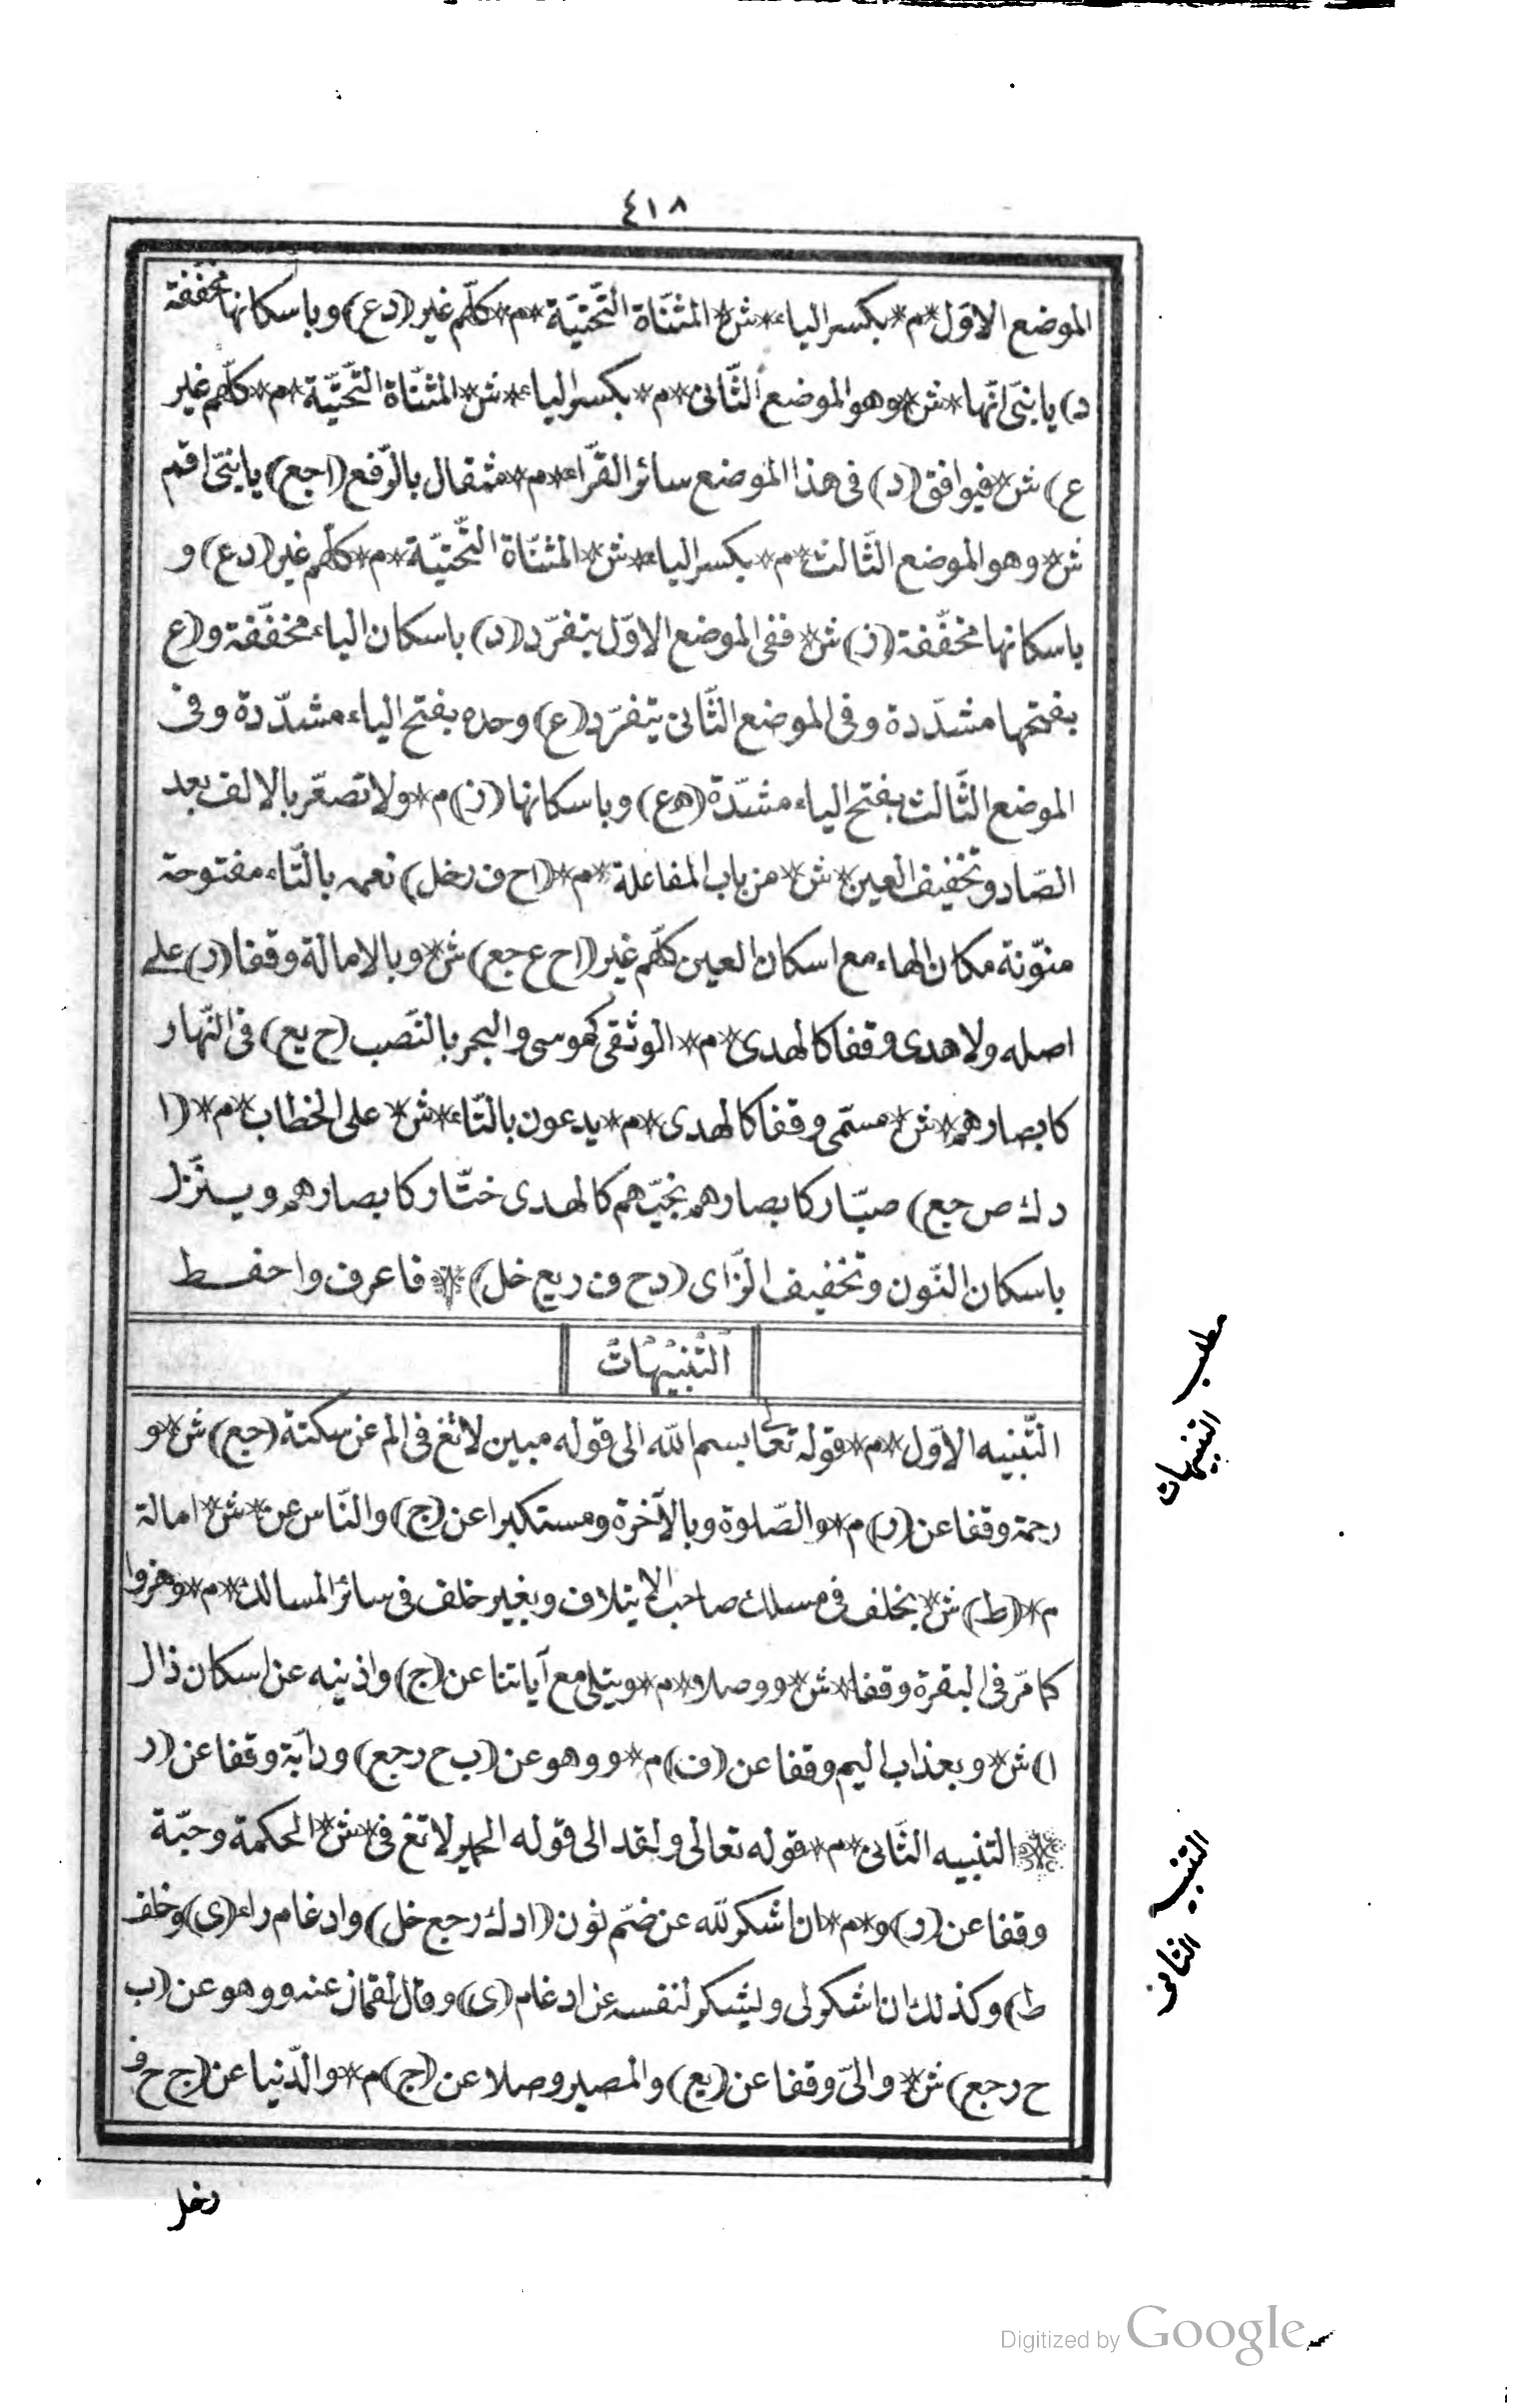 ٤١٨
الموضع الاوّل*م*بكسر الياء*ش*المثنّاة التّحتيّة*م*كلّهم غير (دع) وباسكانها مخفّفة
د) يا بنىّ انّها*ش*وهو الموضع الثّانى*م*بكسر الياء*ش*المثنّاة التّحتيّة*م*كلّهم غير
ع) ش*فيوافق (د) فى هذا الموضع سائر القرّاء*م*مثقال بالرّفع (اجع) يا بنىّ اقم
ش*وهو الموضع الثّالث*م*بكسر الياء*ش*المثنّاة التّحتيّة*م*كلّهم غير (دع) و
باسكانها مخفّفة (ز) ش*ففى الموضع الاوّل يتفرّد (د) باسكان الياء مخفّفة و(ع
بفتحها مشدّدة وفى الموضع الثّانى يتفرّد (ع) وحده بفتح الياء مشدّدة وفى
الموضع الثّالث بفتح الياء مشدّة (هع) وباسكانها (ز) م*ولا تصعّر بالالف بعد
الصّاد وتخفيف العين*ش*من باب المفاعلة*م*(اح ف رخل) نعمه بالتّاء مفتوحة
منوّنة مكان الهاء مع اسكان العين كلّهم غير (اح ع جع) ش*وبالامالة وقفا (ر) على
اصله ولا هدى وقفا كالهدى*م*الوثقى كموسى والبحر بالنّصب (ح يع) فى النّهار
كابصارهم*ش*مسمّى وقفا كالهدى*م*يدعون بالتّاء*ش*على الخطاب*م*(ا
د ك ص جع) صبّار كابصارهم نجيّهم كالهدى ختّار كابصارهم وينزّل
باسكان النّون وتخفيف الزّاى (دح ف ريع خل) * فاعرف واحفـظ
التّنبيهات
مطلب التنبيهات
التّنبيه الاوّل*م*قوله تعالى بسم الله الى قوله مبين لا تغ فى الم عن سكتة (جع) ش*و
رحمة وقفا عن (ر) م*والصّلوة وبالآخرة ومستكبرا عن (ج) والنّاس عن*ش*امالة
م*(ط) ش*بخلف فى مسلك صاحب الايتلاف وبغير خلف فى سائر المسالك*م*وهزوا
كما مرّ فى البقرة وقفا*ش*ووصلا*م*ويتلى مع آياتنا عن (ج) واذنيه عن اسكان ذال
ا) ش*وبعذاب اليم وقفا عن (ف) م*ووهو عن (ب ح رجع) ودابّة وقفا عن (ر
*التنبيه الثّانى*م*قوله تعالى ولقد الى قوله الحمير لا تغ فى*ش*الحكمة وحبّة
التنبيه الثانى
وقفا عن (ر) و*م*ان اشكر لله عن ضمّ نون (ا د ك رجع خل) وادغام راء (ى) وخلف
ط) وكذلك ان اشكر لى وليشكر لنفسه عن ادغام (ى) وقال لقمان عنه ووهو عن (ب
ح رجع) ش*والىّ وقفا عن (يع) والمصير وصلا عن (ج) م*والدّنيا عن (ج ح ف
رخل
Digitized by Google